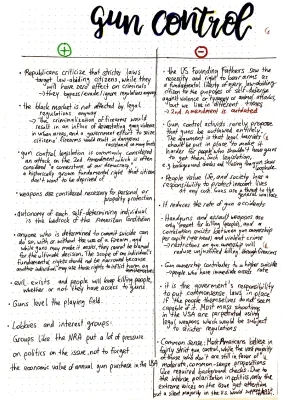 gun control
+
-
• Republicans criticize that stricter laws
target law-abiding citizens, while they
"will have zero effect on criminals"
→ they bypass/break/ignore regulations anyway
• the black market is not affected by legal
regulations anyway
→ the criminalization of firearms would
result in an influx of devastating gun violence
in urban areas, and a government efforts to seize
citizens' firearms would be dangerous
"gun control legislation is commonly considered
an attack on the 2nd Amendment, which is often
considered a cornerstone of our democracy,
a historically given fundamental right that citizens
don't want to be deprived of
• weapons are considered necessary for personal or
property protection
• autonomy of each self-determining individual
is the bedrock of the American Constitution
• anyone who is determined to commit suicide can
do so, with or without the use of a firearm, and
while guns may make it easier, they cannot be blamed
for the ultimate decision. The scope of one individual's
fundamental rights should not be narrowed because
another individual may use their rights to inflict harm on
themselves
• evil exists and people will keep killing people,
whether or not they have access to guns
• Guns level the playing field
• Lobbies and interest groups:
Groups like the NRA put a lot of pressure
on politics on the issue, not to forget
the economic value of annual gun purchase in the USA
• the US Founding Fathers saw the
necessity and right to bear arms as
a fundamental liberty of any law-abiding
citizen for the purposes of self-defense
against violence or tyranny or animal attacks,
but we live in different times
→ 2nd amendment is outdated
• Gun control activists rarely propose
that guns be outlawed entirely.
The argument is that legal barriers
should be put in place to make it
harder for people who shouldn't have guns
to get them. Such legislation,
e.g. background checks and closing the gun show
loophole
• People value life, and society has a
responsibility to protect innocent lives
at any cost. Guns are a threat to the general
• It reduces the rate of gun accidents
• Handguns and assault weapons are
only meant for killing people, and a
correlation exists between gun ownership
per capita and violent crime
→ restrictions on gun ownership will
reduce unjustified killing through firearms
• Gun ownership contributes to a higher suicide
rate
- people who have immediate access
• it is the government's responsibility
to put commonsense laws in place
if the people themselves do not seem
capable of it. Most mass shootings
in the USA are perpetrated using
legal weapons which would be subject
to stricter regulations
• Common sense: Most Americans believe in
fairly strict gun control, while the vast majority
of those who don't are still in favor of
moderate, common-sense propositions
like required background checks. Due to
the intense polarization in politics, only the
extreme voices on the issue get attention
but a silent majority in the US would support